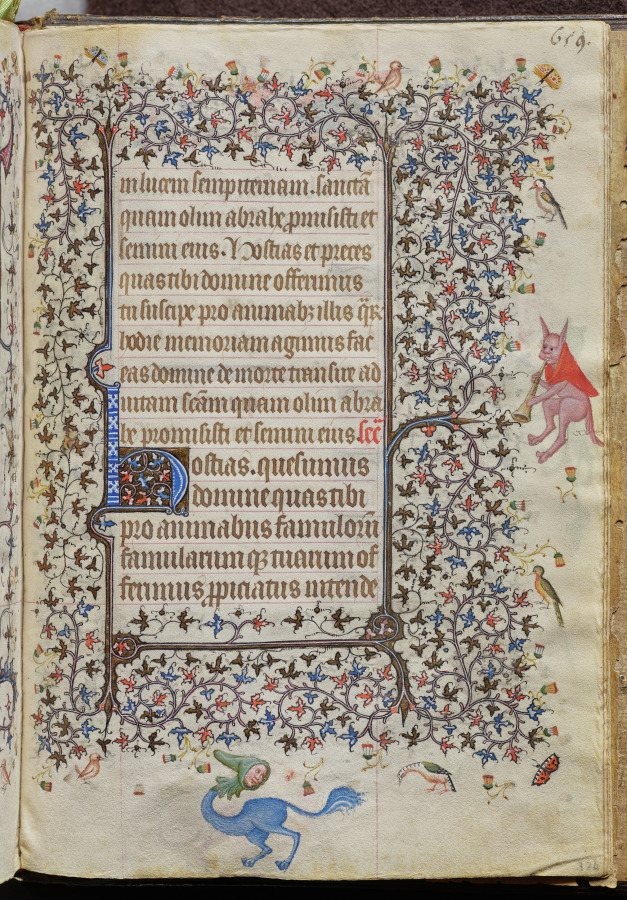 659.
in lucem sempiternam. sanctā
quam olim abrahe ꝓmisisti et
semini eius. Hostias et preces
quas tibi domine offerimus
tu suscipe pro animabꝫ illis q̄ꝝ
hodie memoriam agimus fac
eas domine de morte transire ad
uitam sc̄am quam olim abra
he promisisti et semini eius. Sec̄
Hostias. quesumus
domine quas tibi
pro animabus famulorū
famularum qꝫ tuarum of
ferimus ꝓpiciatus intende
326